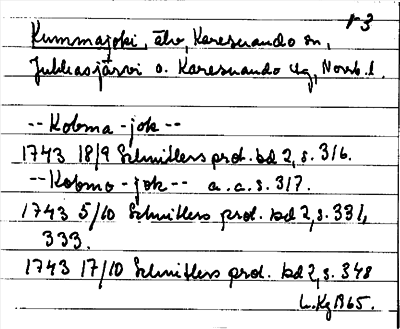 r3
Kummajoki, älv, Karesuando sn,
Jukkasjärvi o. Karesuando tlg, Norrb. l.
-- Kobma - jok --
1743 18/9 Schnitlers prot. bd 2, s. 316.
-- Kobmo - jok -- a. a. s. 317.
1743 5/10 Schnitlers prot. bd 2, s. 331,
333.
1743 17/10 Schnitlers prot. bd 2, s. 348